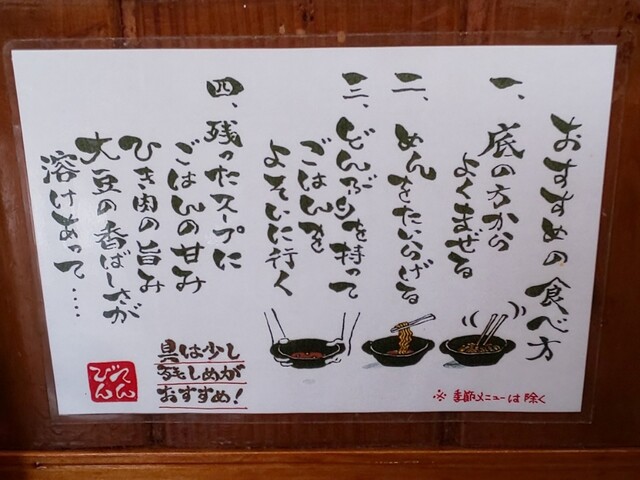 おすすめの食べ方
一、底の方から
よくまぜる
二、めんをたいらげる
三、どんぶりを持って
ごはんを
よそいに行く
四、残ったスープに
ごはんの甘み
ひき肉の旨み
大豆の香ばしさが
溶けあって‥‥
※季節メニューは除く
具は少し
残しめが
おすすめ！
てん
びん